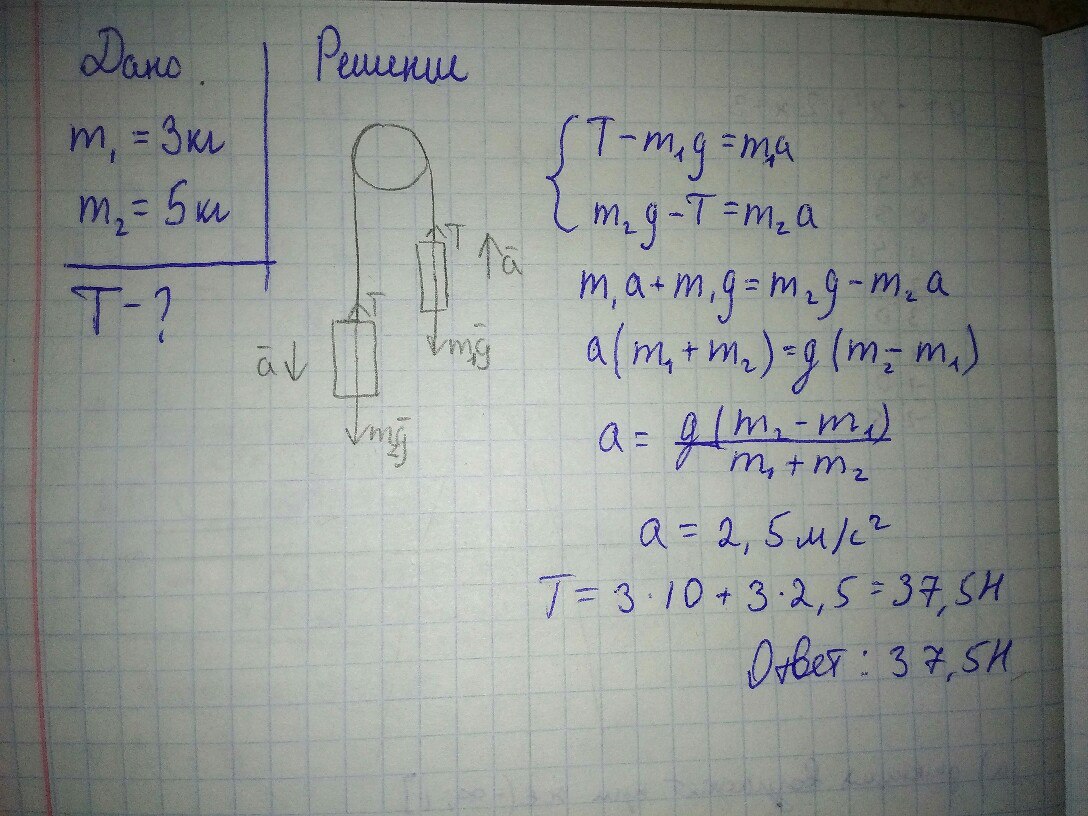 Дано
m₁ = 3кг
m₂ = 5кг
T - ?
Решение
T
a̅
m₁g̅
T
a̅
m₂g̅
T - m₁g = m₁a
m₂g - T = m₂a
m₁a + m₁g = m₂g - m₂a
a(m₁ + m₂) = g(m₂ - m₁)
a = g(m₂ - m₁)
m₁ + m₂
a = 2,5м/с²
T = 3·10 + 3·2,5 = 37,5Н
Ответ: 37,5Н